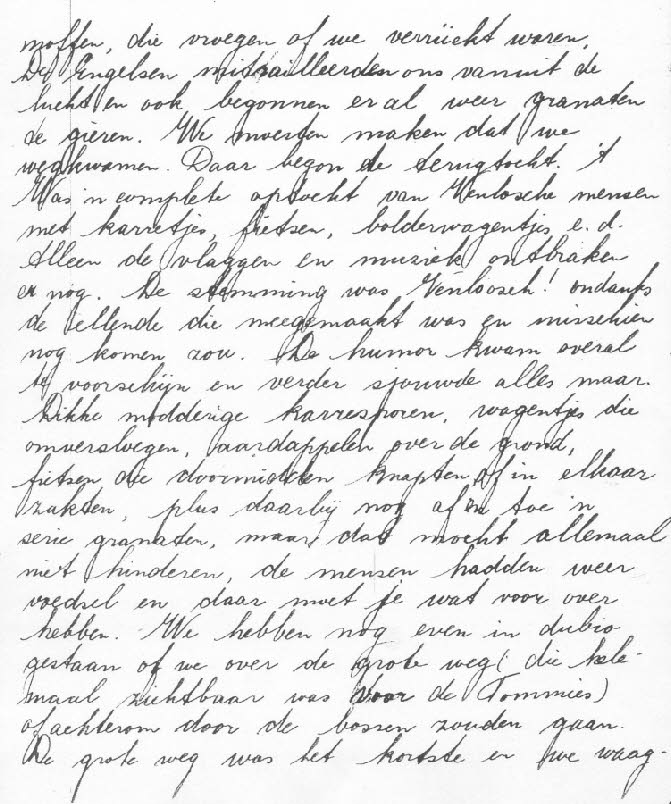 moffen, die vroegen of we verrückt waren.
De Engelsen mitrailleerden ons vanuit de
lucht en ook begonnen er al weer granaten
te gieren. We moesten maken dat we
wegkwamen. Daar begon de terugtocht. 't
Was 'n complete optocht van Venlosche mensen
met karretjes, fietsen, bolderwagentjes e.d.
Alleen de vlaggen en muziek ontbraken
er nog. De stemming was Venloosch! ondanks
de ellende die meegemaakt was en misschien
nog komen zou. De humor kwam overal
te voorschijn en verder sjouwde alles maar.
Dikke modderige karresporen, wagentjes die
omversloegen, aardappelen over de grond,
fietsen die doormidden knapten of in elkaar
zakten, plus daarbij nog af en toe 'n
serie granaten, maar dat mocht allemaal
niet hinderen, de mensen hadden weer
voedsel en daar moet je wat voor over
hebben. We hebben nog even in dubio
gestaan of we over de grote weg (die hele-
maal zichtbaar was voor de Tommies)
of achterom door de bossen zouden gaan.
De grote weg was het kortste en we waag-